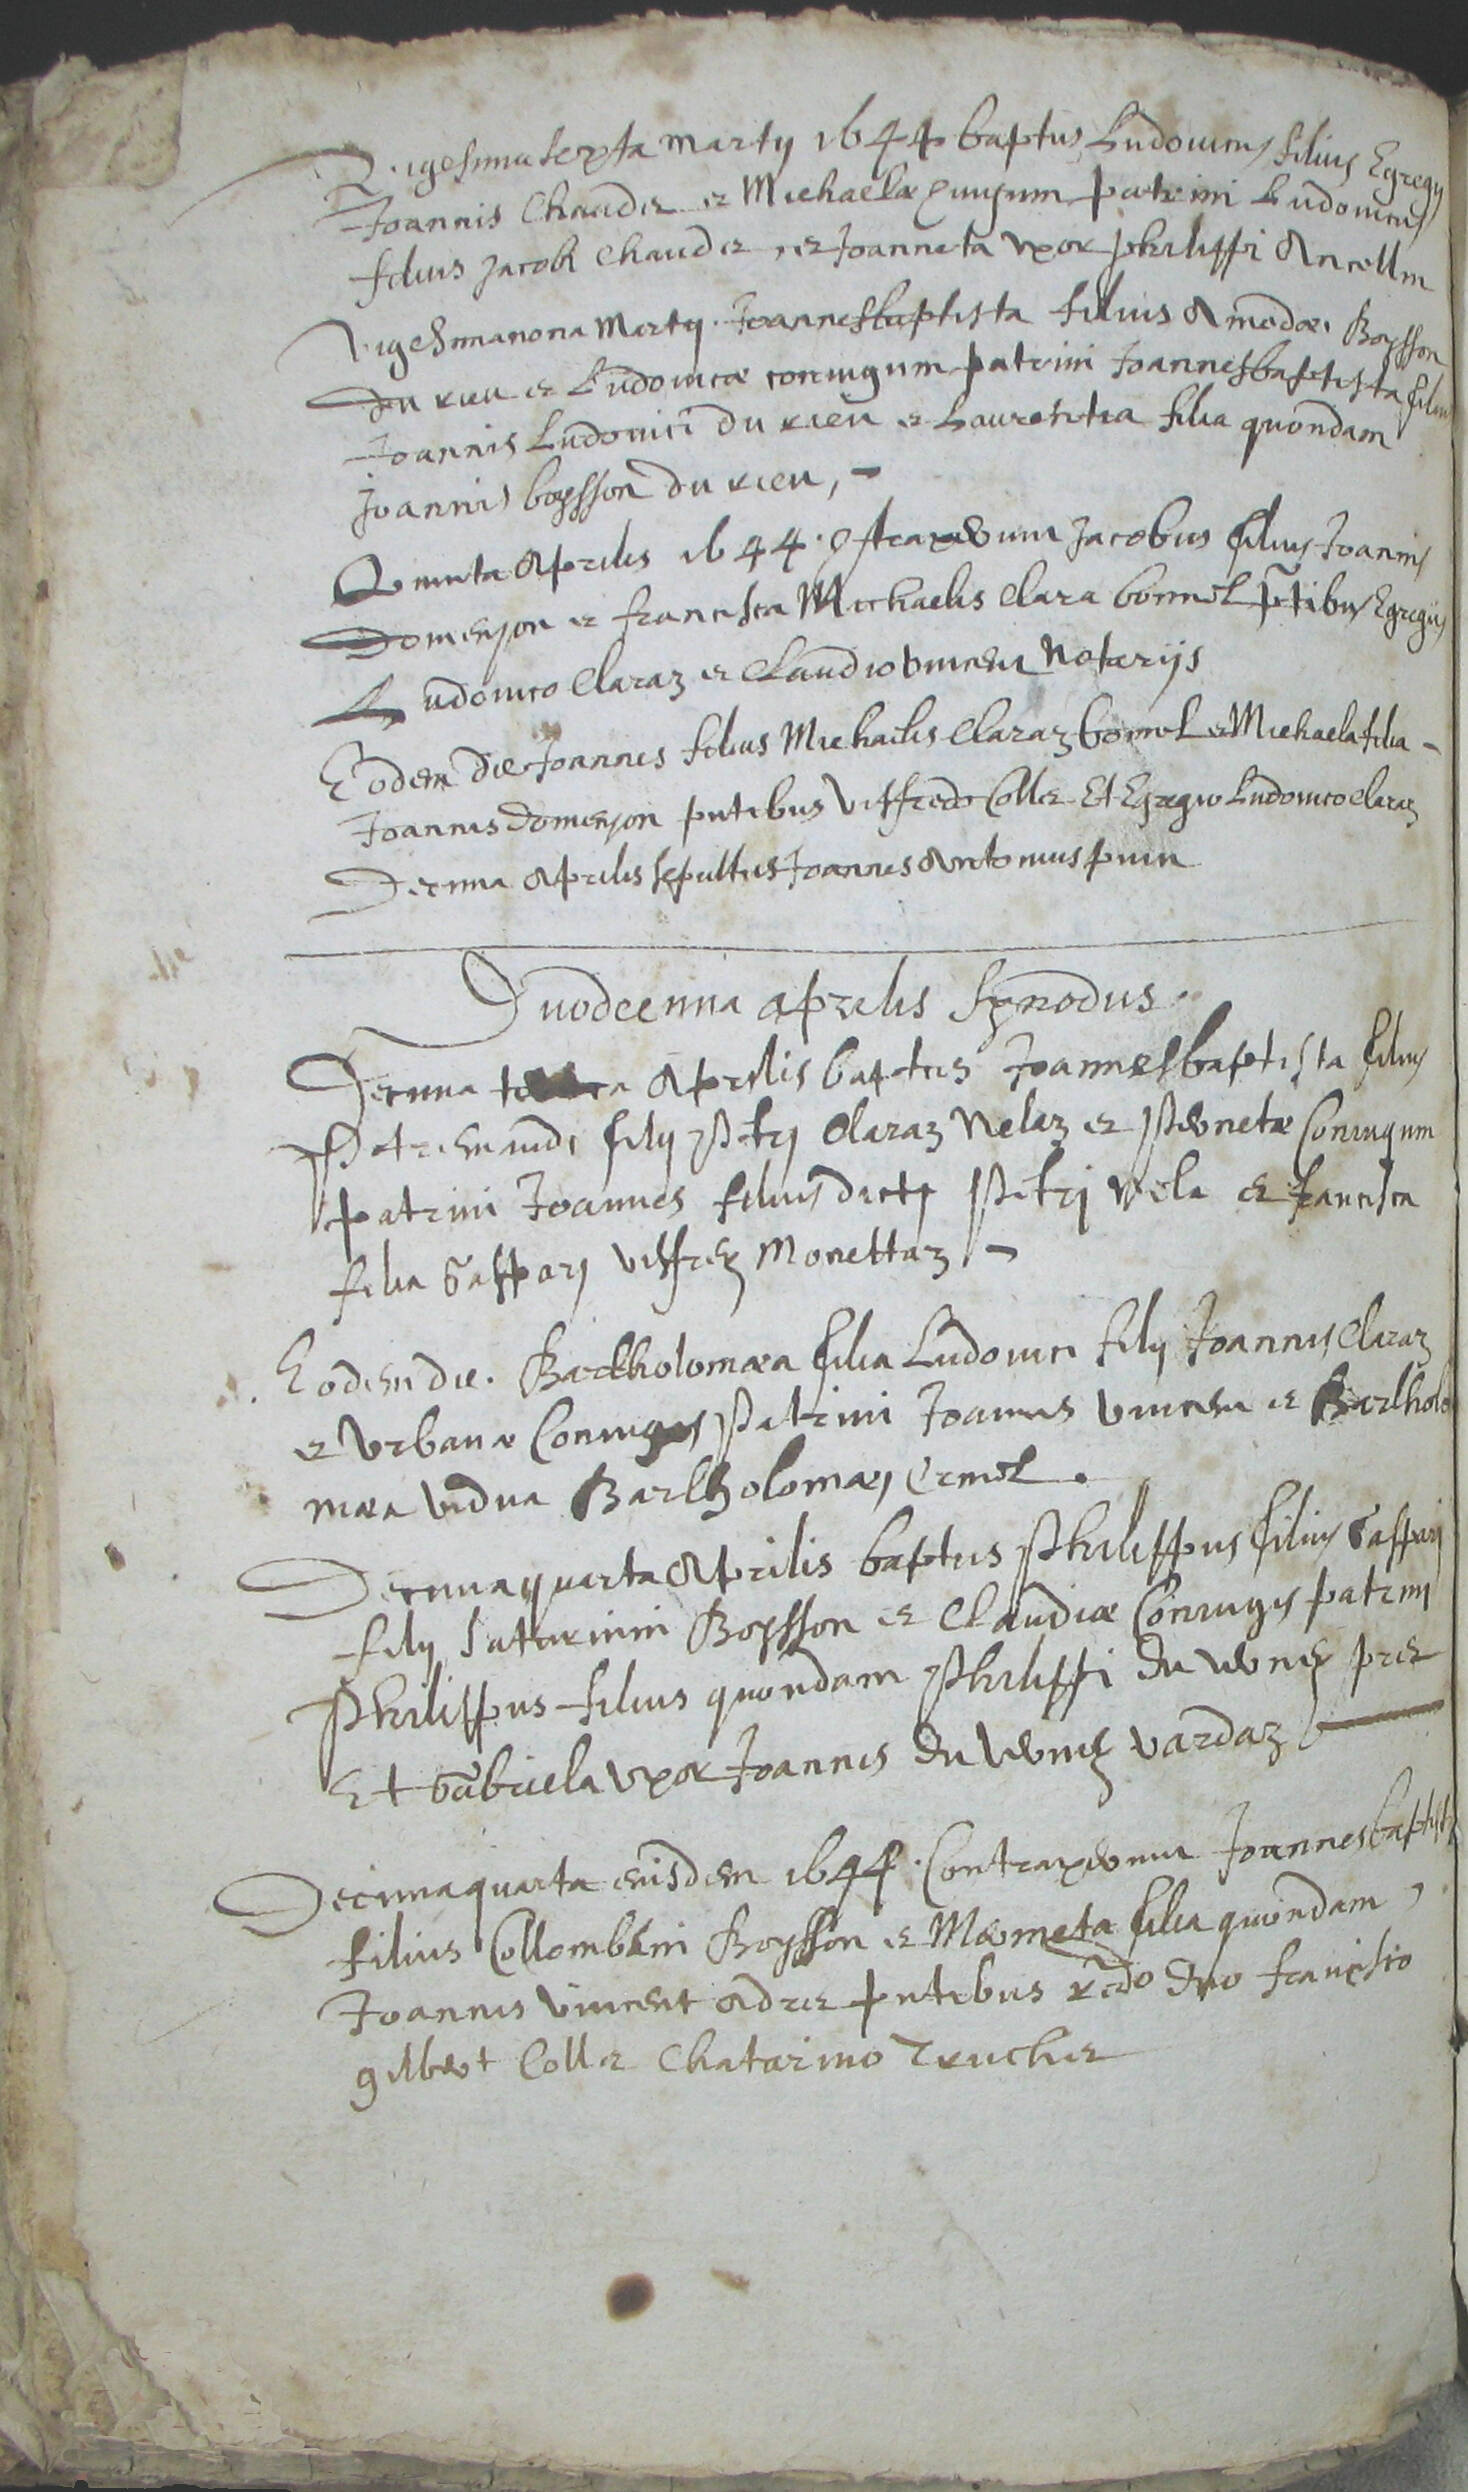 Vigesima sexta martij 1644 baptus Ludovicus filius Egregij
Joannis Chaudet et Michaelæ Conjugum patrini Ludovicus
filius Jacobi Chaudet, et Joanneta uxor philippi Ancellin
Vigesimanona Martij. Joannesbaptista filius Amedæi Boysson
du rieu et Ludovicæ conjugum patrini Joannesbaptista filius
Joannis Ludovici du rieu et Laurentia filia quondam
Joannis boysson du rieu, -
Quinta Aprilis 1644. Contraxerunt Jacobus filius Joannis
Domenjon et francisca Michaelis Clara bonnel ptibus Egregijs
Ludovico Claraz et Claudio vincent Notarijs
Eodem die Joannes filius Michaelis Claraz bonnel et Michaela filia -
Joannis Domenjon pntibus Viffredo Collet Et Egregio Ludovico Claraz
Decima Aprilis sepultus Joannes Antonius
Duodecima aprilis synodus.
Decima Aprilis baptus Joannesbaptista filius
filij Petrj Claraz Velaz et Pernetæ Conjugum
patrini Joannes filius dictj Petrj Vela et francisca
filia Gasparj Viffrey Monettaz -
Eodem die. Bartholomæa filia Ludovici filij Joannis Claraz
et Urbanæ Conjuges Patrini Joannes Vincent et Bartholo
mæa vidua Bartholomæj Ermel.
Decimaquarta Aprilis baptus Philippus filius Gasparj
filij Saturnini Boysson et Claudiæ Conjuges patrinj
Philippus filius quondam Philippi du verney
Et Gabriela uxor Joannis du Verney vardaz
Decimaquarta eiusdem 1644. Contraxerunt Joannesbaptista
filius Collombani Boysson et Mermeta filia quondam
Joannis Vincent pntibus rdo dno francisco
gilbert Collet Chatarino Truchet